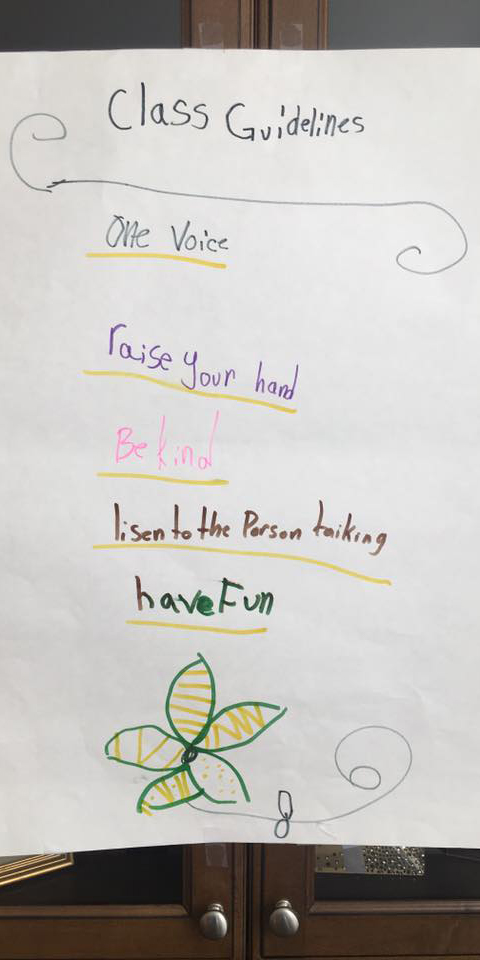 Class Guidelines
One Voice
raise your hand
Be kind
lisen to the Person taiking
have Fun